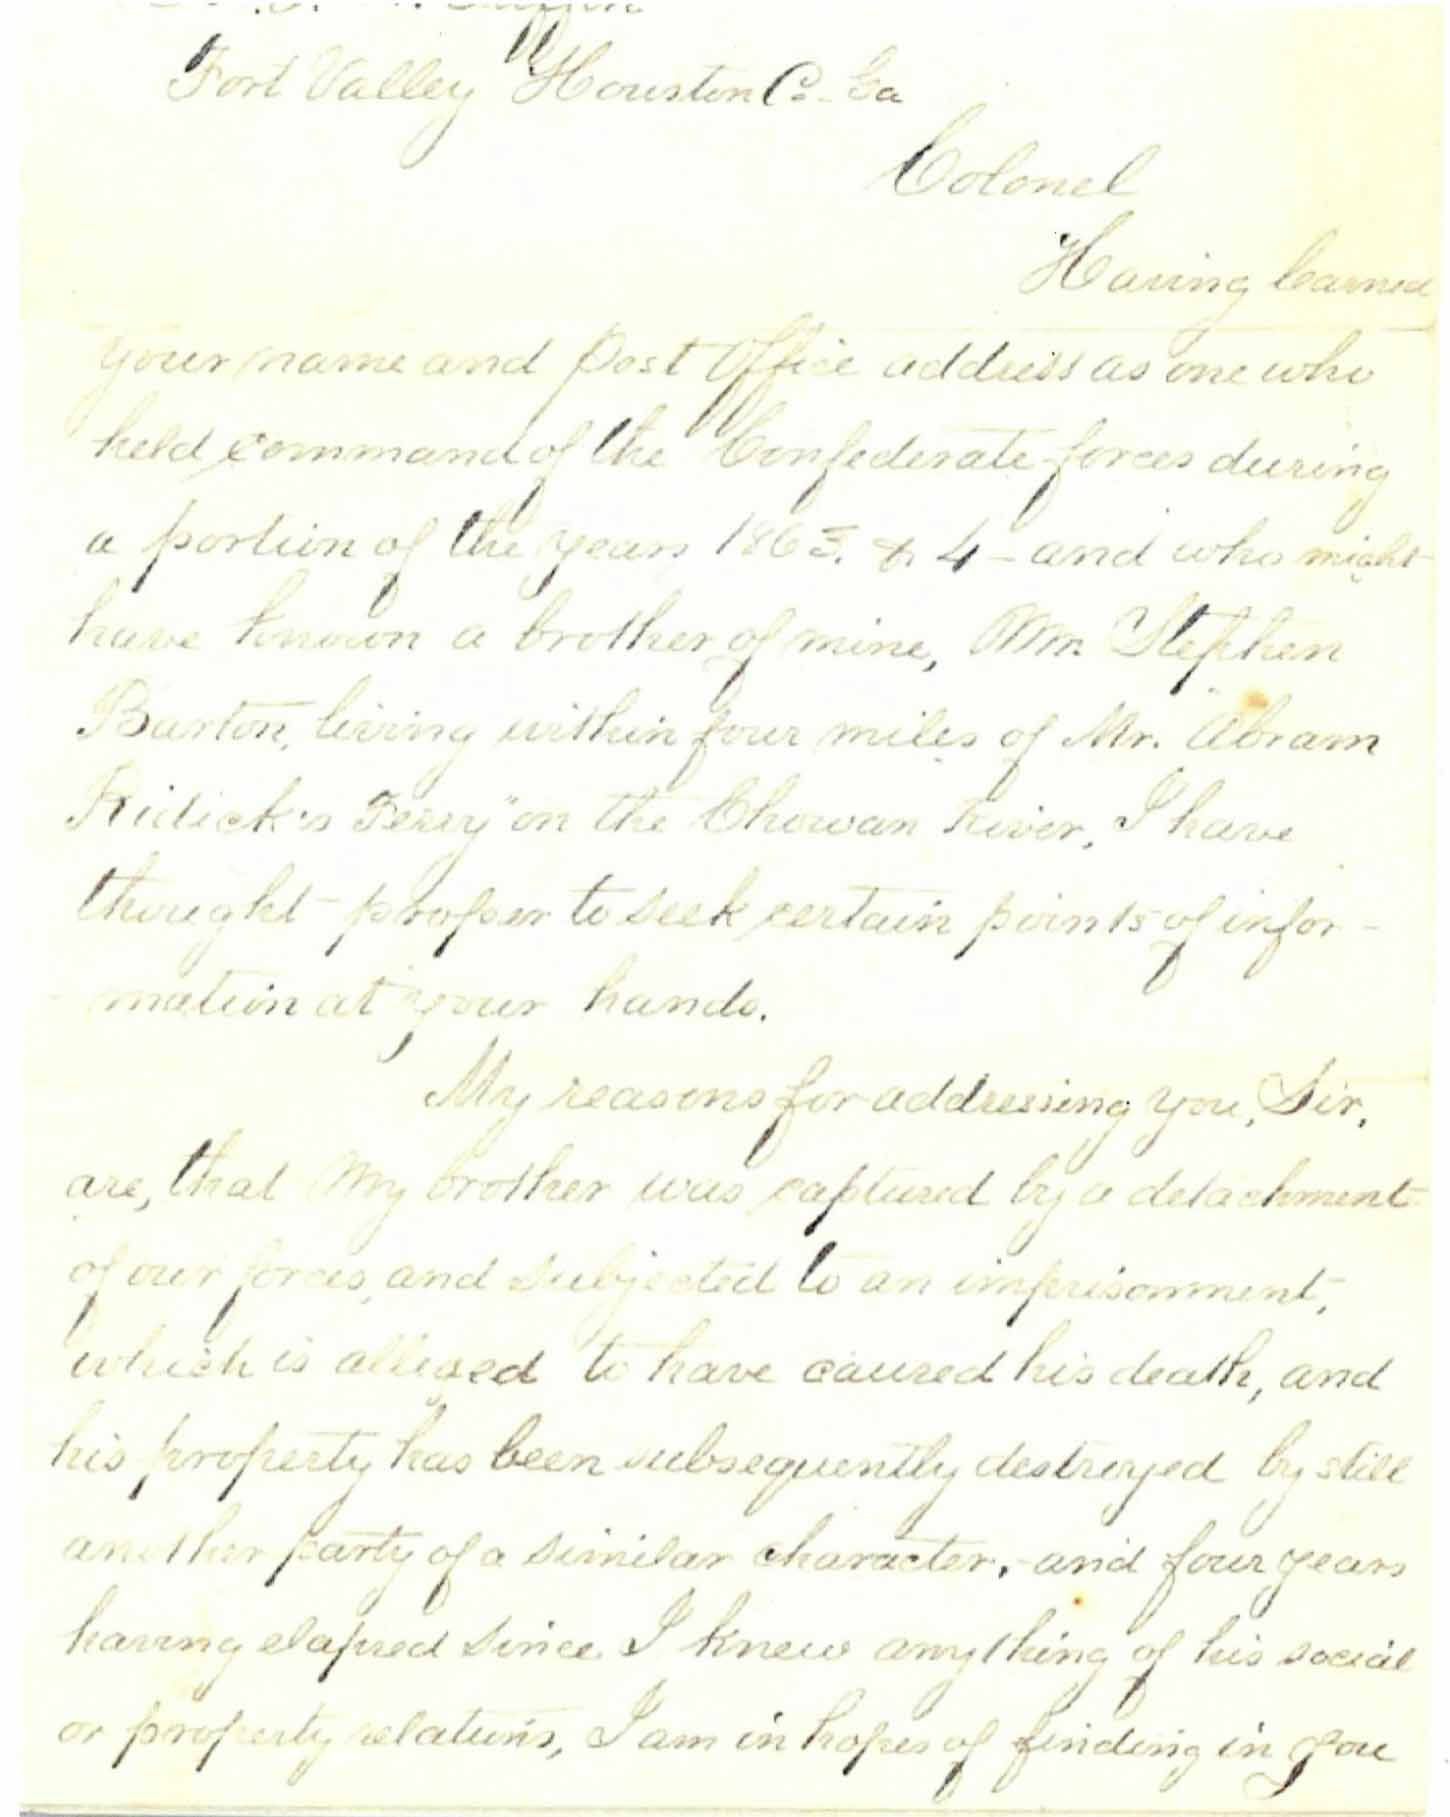 Fort Valley Houston Co. Ga
Colonel
Having learned
your name and Post Office address as one who
held command of the Confederate forces during
a portion of the years 1863. & 4 - and who might
have known a brother of mine, Wm Stephen
Barton, living within four miles of Mr. "Abram
Ridick's Ferry" on the Chowan River, I have
thought proper to seek certain points of infor-
-mation at your hands.
My reasons for addressing you, Sir,
are, that my brother was captured by a detachment
of our forces, and subjected to an imprisonment,
which is alleged to have caused his death, and
his property has been subsequently destroyed by still
another party of a similar character, - and four years
having elapsed since I knew anything of his social
or property relations, I am in hopes of finding in you